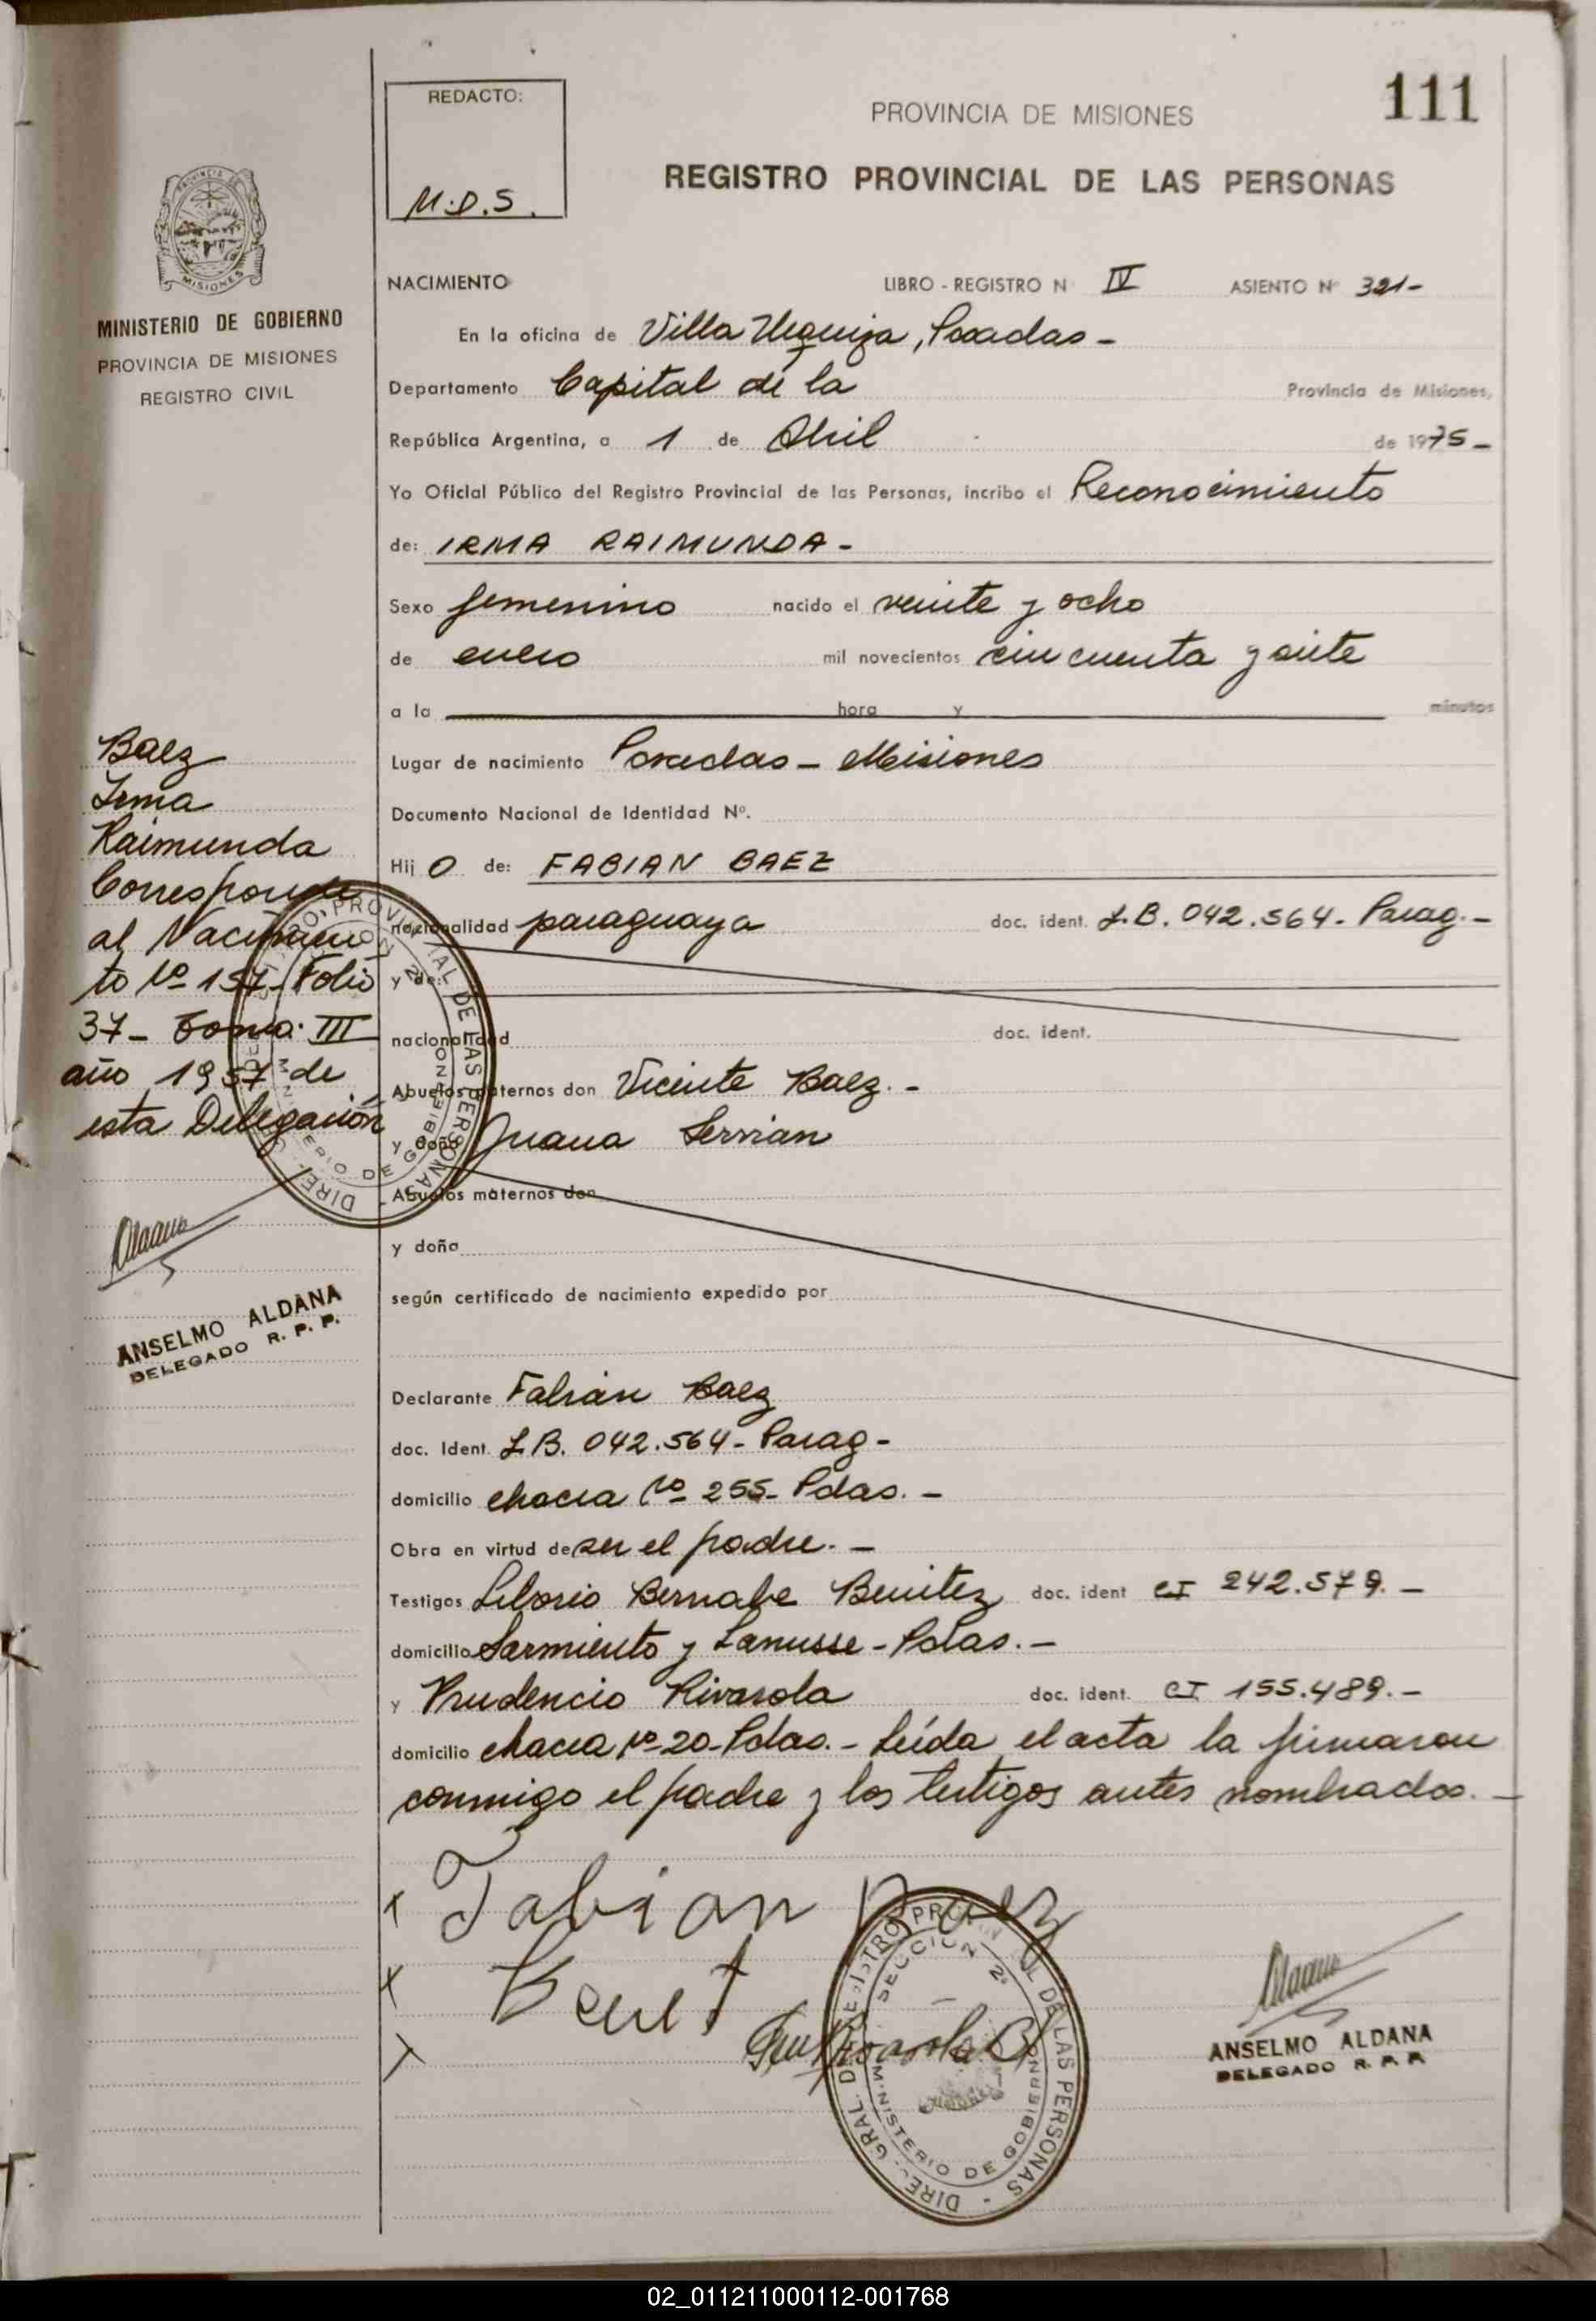 111
REDACTO:
M.D.S.
PROVINCIA DE MISIONES
REGISTRO PROVINCIAL DE LAS PERSONAS
MINISTERIO DE GOBIERNO
PROVINCIA DE MISIONES
REGISTRO CIVIL
NACIMIENTO LIBRO - REGISTRO N IV ASIENTO Nº 321-
En la oficina de Villa Urquiza, Posadas -
Departamento Capital de la Provincia de Misiones,
República Argentina, a 1 de Abril de 1975 -
Yo Oficial Público del Registro Provincial de las Personas, incribo el Reconocimiento
de: IRMA RAIMUNDA -
Sexo femenino nacido el veinte y ocho
de enero mil novecientos cincuenta y siete
a la hora y minutos
Lugar de nacimiento Posadas - Misiones
Documento Nacional de Identidad Nº.
Hij O de: FABIAN BAEZ
nacionalidad paraguaya doc. ident. L.B. 042.564 - Parag. -
y de:
nacionalidad doc. ident.
Abuelos paternos don Vicente Baez. -
y doña Juana Servian
Abuelos maternos don
y doña
según certificado de nacimiento expedido por
Declarante Fabián Baez
doc. Ident. L.B. 042.564 - Parag -
domicilio chacra Nº 255 - Pdas. -
Obra en virtud de ser el padre. -
Testigos Liborio Bernabe Benitez doc. ident CI 242.579. -
domicilio Sarmiento y Lanusse - Pdas. -
y Prudencio Rivarola doc. ident. CI 155.489. -
domicilio chacra Nº 20 - Pdas. - Leída el acta la firmaron
conmigo el padre y los testigos antes nombrados. -
Baez
Irma
Raimunda
Corresponde
al Nacimien
to Nº 157 - Folio
37 - Tomo: III
año 1957 de
esta Delegación
ANSELMO ALDANA
DELEGADO R. P. P.
x Fabian Baez
x Benit
ANSELMO ALDANA
DELEGADO R. P. P.
DIREC. GRAL. DE REGISTRO PROVINCIAL DE LAS PERSONAS
SECCION 2ª
MINISTERIO DE GOBIERNO
02_011211000112-001768